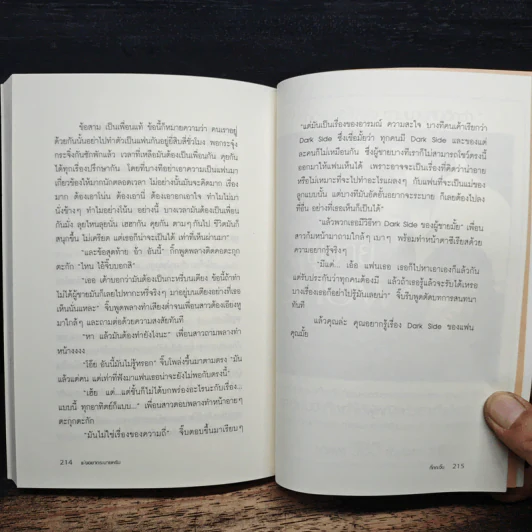 ข้อสาม เป็นเพื่อนแท้ ข้อนี้ก็หมายความว่า คนเราอยู่
ด้วยกันนั้นอย่าไปทำตัวเป็นแฟนกันอยู่ยี่สิบสี่ชั่วโมง พอกระจุ๋ง
กระจิ๋งกันซักพักแล้ว เวลาที่เหลือมันต้องเป็นเพื่อนกัน คุยกัน
ได้ทุกเรื่องปรึกษากัน โดยที่บางทีอย่าเอาความเป็นแฟนมา
เกี่ยวข้องให้มากนักตลอดเวลา ไม่อย่างนั้นมันจะคิดมาก เรื่อง
มาก ต้องเอาโน่น ต้องเอานี่ ต้องเอาอกเอาใจ ทำไมไม่มา
นั่งข้างๆ ทำไมอย่างโน้น อย่างนี้ บางเวลามันต้องเป็นเพื่อน
กันมั่ง ลุยไหนลุยนั่น เฮฮากัน คุยกัน ตามๆกันไป ชีวิตมันก็
สนุกขึ้น ไม่เครียด แต่เธอก็น่าจะเป็นได้ เท่าที่เห็นผ่านมา"
"และข้อสุดท้าย อ้า อันนี้" กิ๊กพูดพลางติดคอตะกุก
ตะกัก "ไหน ไอ้จิ๊บบอกสิ"
"เออ เค้าบอกว่ามันต้องเป็นกะหรี่บนเตียง ข้อนี้ถ้าทำ
ไม่ได้ผู้ชายมันก็เลยไปหากะหรี่จริงๆ มาอยู่บนเตียงอย่างที่เธอ
เห็นนั่นแหละ" จิ๊บพูดพลางทำเสียงต่ำจนเพื่อนสาวต้องเอียงหู
มาใกล้ๆ และถามต่อด้วยความสงสัยทันที
"หา แล้วมันต้องทำยังไงนะ" เพื่อนสาวถามพลางทำ
หน้างงงง
"โอ๊ย อันนี้มันไม่รู้หรอก" จิ๊บโพล่งขึ้นมาตามตรง "มัน
แล้วแต่คน แต่เท่าที่ฟังมาแฟนเธอน่าจะยังไม่พอกับตรงนี้"
"เฮ้ย แต่...แต่ชั้นก็ไม่ได้บกพร่องอะไรนะกับเรื่อง...
แบบนี้ ทุกอาทิตย์ก็แบบ..." เพื่อนสาวตอบพลางทำหน้าอายๆ
ตะกุกตะกัก
"มันไม่ใช่เรื่องของความถี่" จิ๊บตอบขึ้นมาเรียบๆ
214
"แต่มันเป็นเรื่องของอารมณ์ ความสะใจ บางทีคนเค้าเรียกว่า
Dark Side ซึ่งเชื่อมั้ยว่า ทุกคนมี Dark Side และของแต่
ละคนก็ไม่เหมือนกัน ซึ่งผู้ชายบางทีเราก็ไม่สามารถโชว์ตรงนี้
ออกมาให้แฟนเห็นได้ เพราะอาจจะเป็นเรื่องที่คิดว่าน่าอาย
หรือไม่เหมาะที่จะไปทำอะไรแผลงๆ กับแฟนที่จะเป็นแม่ของ
ลูกแบบนั้น แต่บางทีมันอัดอั้นอยากจะระบาย ก็เลยต้องไปลง
ที่อื่น อย่างที่เธอเห็นก็เป็นได้"
"แล้วพวกเธอมีวิธีหา Dark Side ของผู้ชายมั้ย" เพื่อน
สาวก้มหน้ามาถามใกล้ๆ เบาๆ พร้อมทำหน้าตาซีเรียสด้วย
ความอยากรู้จริงๆ
"มีแต่... เอ้อ แฟนเธอ เธอก็ไปหาเอาเองก็แล้วกัน
แต่รับประกันว่าทุกคนต้องมี แล้วถ้าเธอรู้แล้วจะรับได้เหรอ
บางเรื่องเธอก็อย่าไปรู้มันเลยน่า" จิ๊บรีบพูดตัดบทการสนทนา
ทันที
แล้วคุณล่ะ คุณอยากรู้เรื่อง Dark Side ของแฟน
คุณมั้ย
215